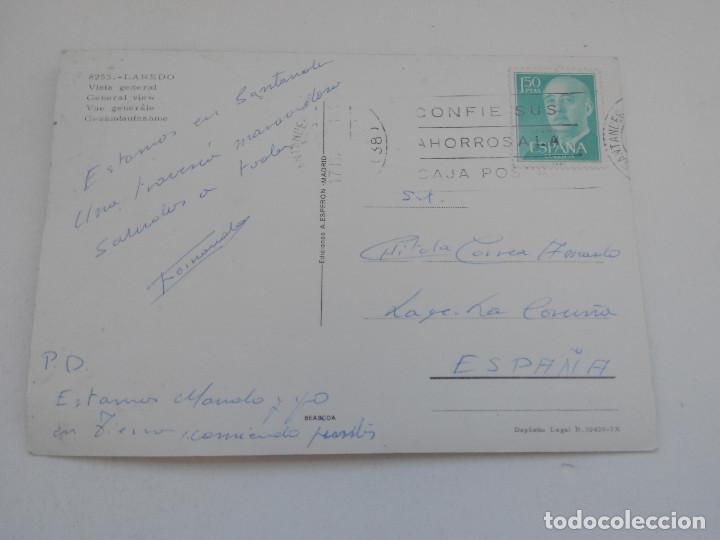 8253.-LAREDO
Vista general
General view
Vue genérale
Gesamdaufnahme
Estamos en Santander
Una travesía maravillosa
Saludos a todos
Fernando
P.D.
Estamos Manolo y yo
en Tierra, comiendo
Ediciones A. ESPERON - MADRID
BEASCOA
1'50
PTAS
ESPAÑA
CONFIE SUS
AHORROS A LA
CAJA POS
SANTANDER
Srt.
Pitola Correa
Lage. La Coruña
ESPAÑA
Depósito Legal B.
todocoleccion
todocoleccion.net